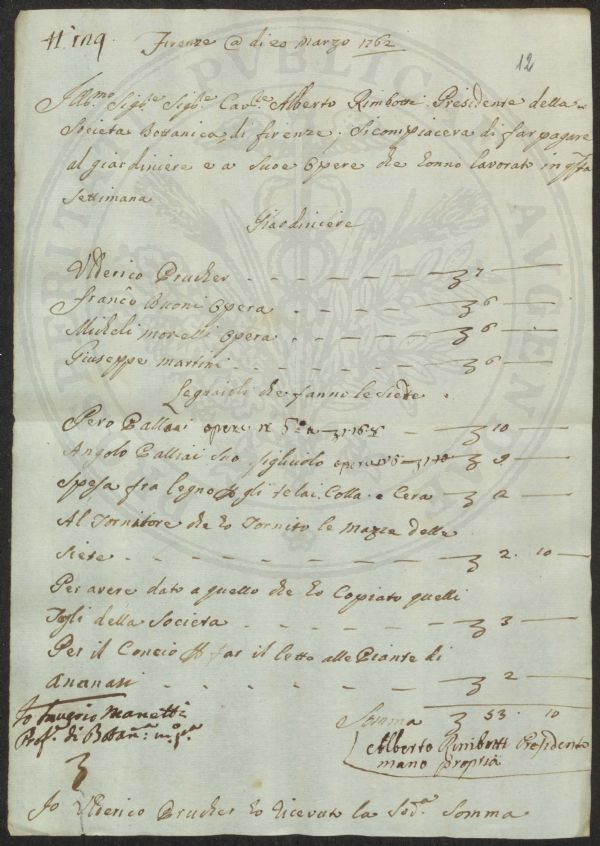 N. 129.
12
Firenze @ di 20 Marzo 1762
Ill.mo Sig.re Sig.re Cav.re Alberto Rimbotti Presidente della
Societa Bottanica, di firenze, si compiacera di far pagare
al giardiniere e a sue Opere che Ŀonno lavorato in q.sta
settimana
Giardiniere
Ulderico Prucher - - - - - ʒ 7 —
Franco Buoni Opera - - - ʒ 6 —
Micheli Morelli Opera - - - ʒ 6 —
Giuseppe Martini - - - - ʒ 6 —
Legnaioli che fanno le siede
Pero Pallai opere n 6 ʒ 10 —
Angolo Pallai suo figliuolo opere ʒ 9 —
Spesa fra legno gli telai. Colla. e Cera — ʒ 2 —
Al Tornitore che Ŀo Tornito le Mazze delle
siede - - - - - - ʒ 2. 10 —
Per avere dato a quello che Ŀo Copiato quelli
fogli della Societa - - - - ʒ 3 —
Per il Concio far il letto alle Piante di
Ananasi - - - - - ʒ 2 —
Somma ʒ 53. 10
Io Saverio Manetti
Prof.e di Botan.a m.o p.a
Alberto Rimbotti Presidente
mano propria
Io Ulderico Prucher Ŀo Ricevuto la Sod.a Somma